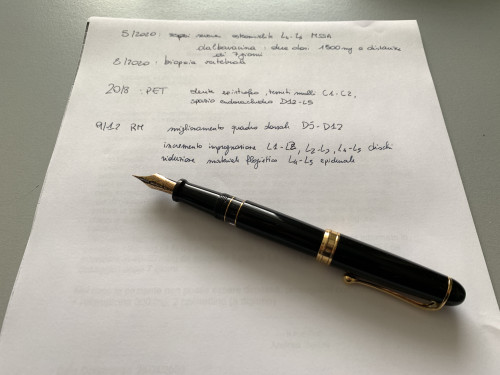 5/2020: sepsi L4-L5 MSSA
dalbavancina: due dosi 1500 mg a distanza
di 7 giorni
8/2020: biopsia vertebrale
20/8: PET dente epistrofeo, tessuti molli L1-L2,
spazio D12-L5
9/12 RM miglioramento quadro dorsali D5-D12
incremento impregnazione L1-L2, L2-L3, L4-L5 dischi
riduzione materiale flogistico L4-L5 epidurale